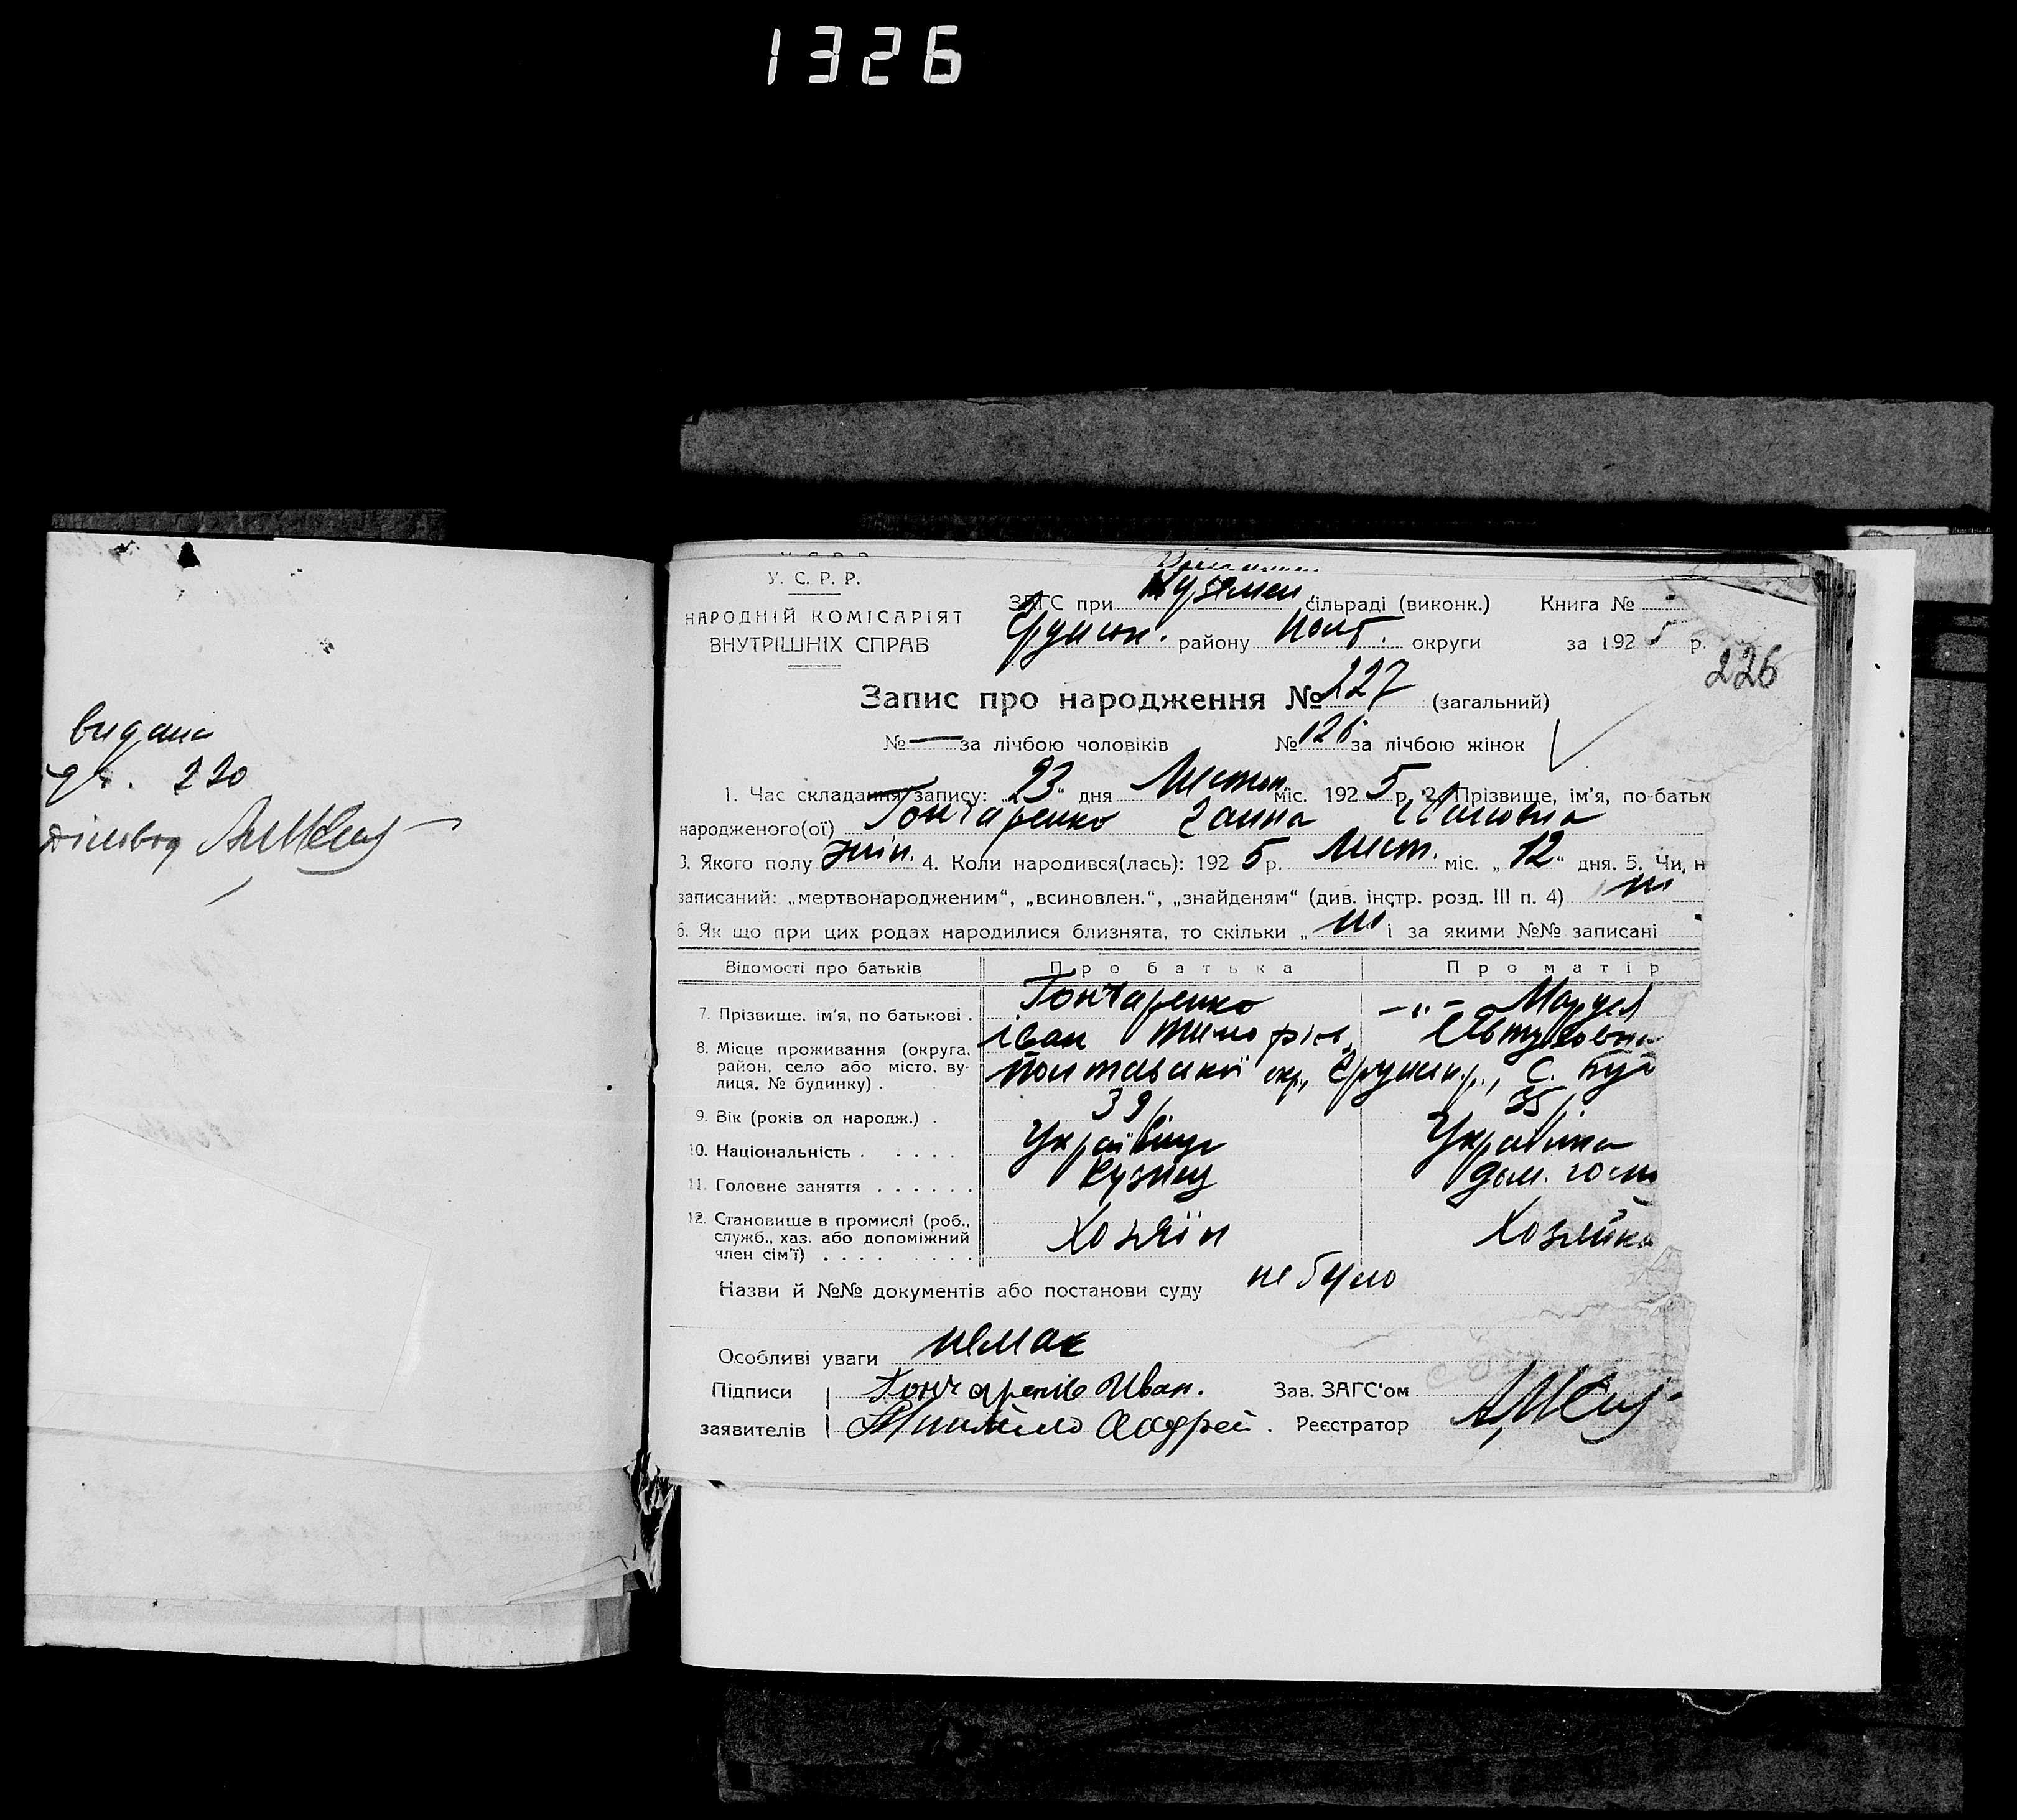 1326
видана
220
У. С. Р. Р.
НАРОДНІЙ КОМІСАРІЯТ
ВНУТРІШНІХ СПРАВ
ЗАГС при Куземен. сільраді (виконк.) Книга №
Грунськ. району Полт. округи за 1925 р.
226
Запис про народження № 227 (загальний)
№ — за лічбою чоловіків № 126 за лічбою жінок
1. Час складання запису: „23“ дня Листоп. міс. 1925 р. 2. Прізвище, ім'я, по-батьк
народженого(ої) Гончаренко Ганна Ивановна
3. Якого полу жін. 4. Коли народився(лась): 1925 р. Лист. міс. „12“ дня. 5. Чи, н
записаний: „мертвонародженим“, „всиновлен.“, „знайденям“ (див. інстр. розд. III п. 4) ні
6. Як що при цих родах народилися близнята, то скільки „ ні і за якими №№ записані
Відомості про батьків Про батька Про матір
7. Прізвище, ім'я, по батькові . Гончаренко —„— Маруся
Іван Тимофієв.
8. Місце проживання (округа, район, село або місто, вулиця, № будинку) . Полтавської окр., Грунськ.р., с.
9. Вік (років од народж.) . 39 35
10. Національність . . . . . Українець Українка
11. Головне заняття . . . . . . Кузнец дом. госп
12. Становище в промислі (роб., служб., хаз. або допоміжний член сім'ї) . . . . . . . Хозяїн Хозяйка
Назви й №№ документів або постанови суду не було
Особливі уваги немає
Підписи Гончаренко Иван. Зав. ЗАГС'ом
заявителів Андрей. Реєстратор